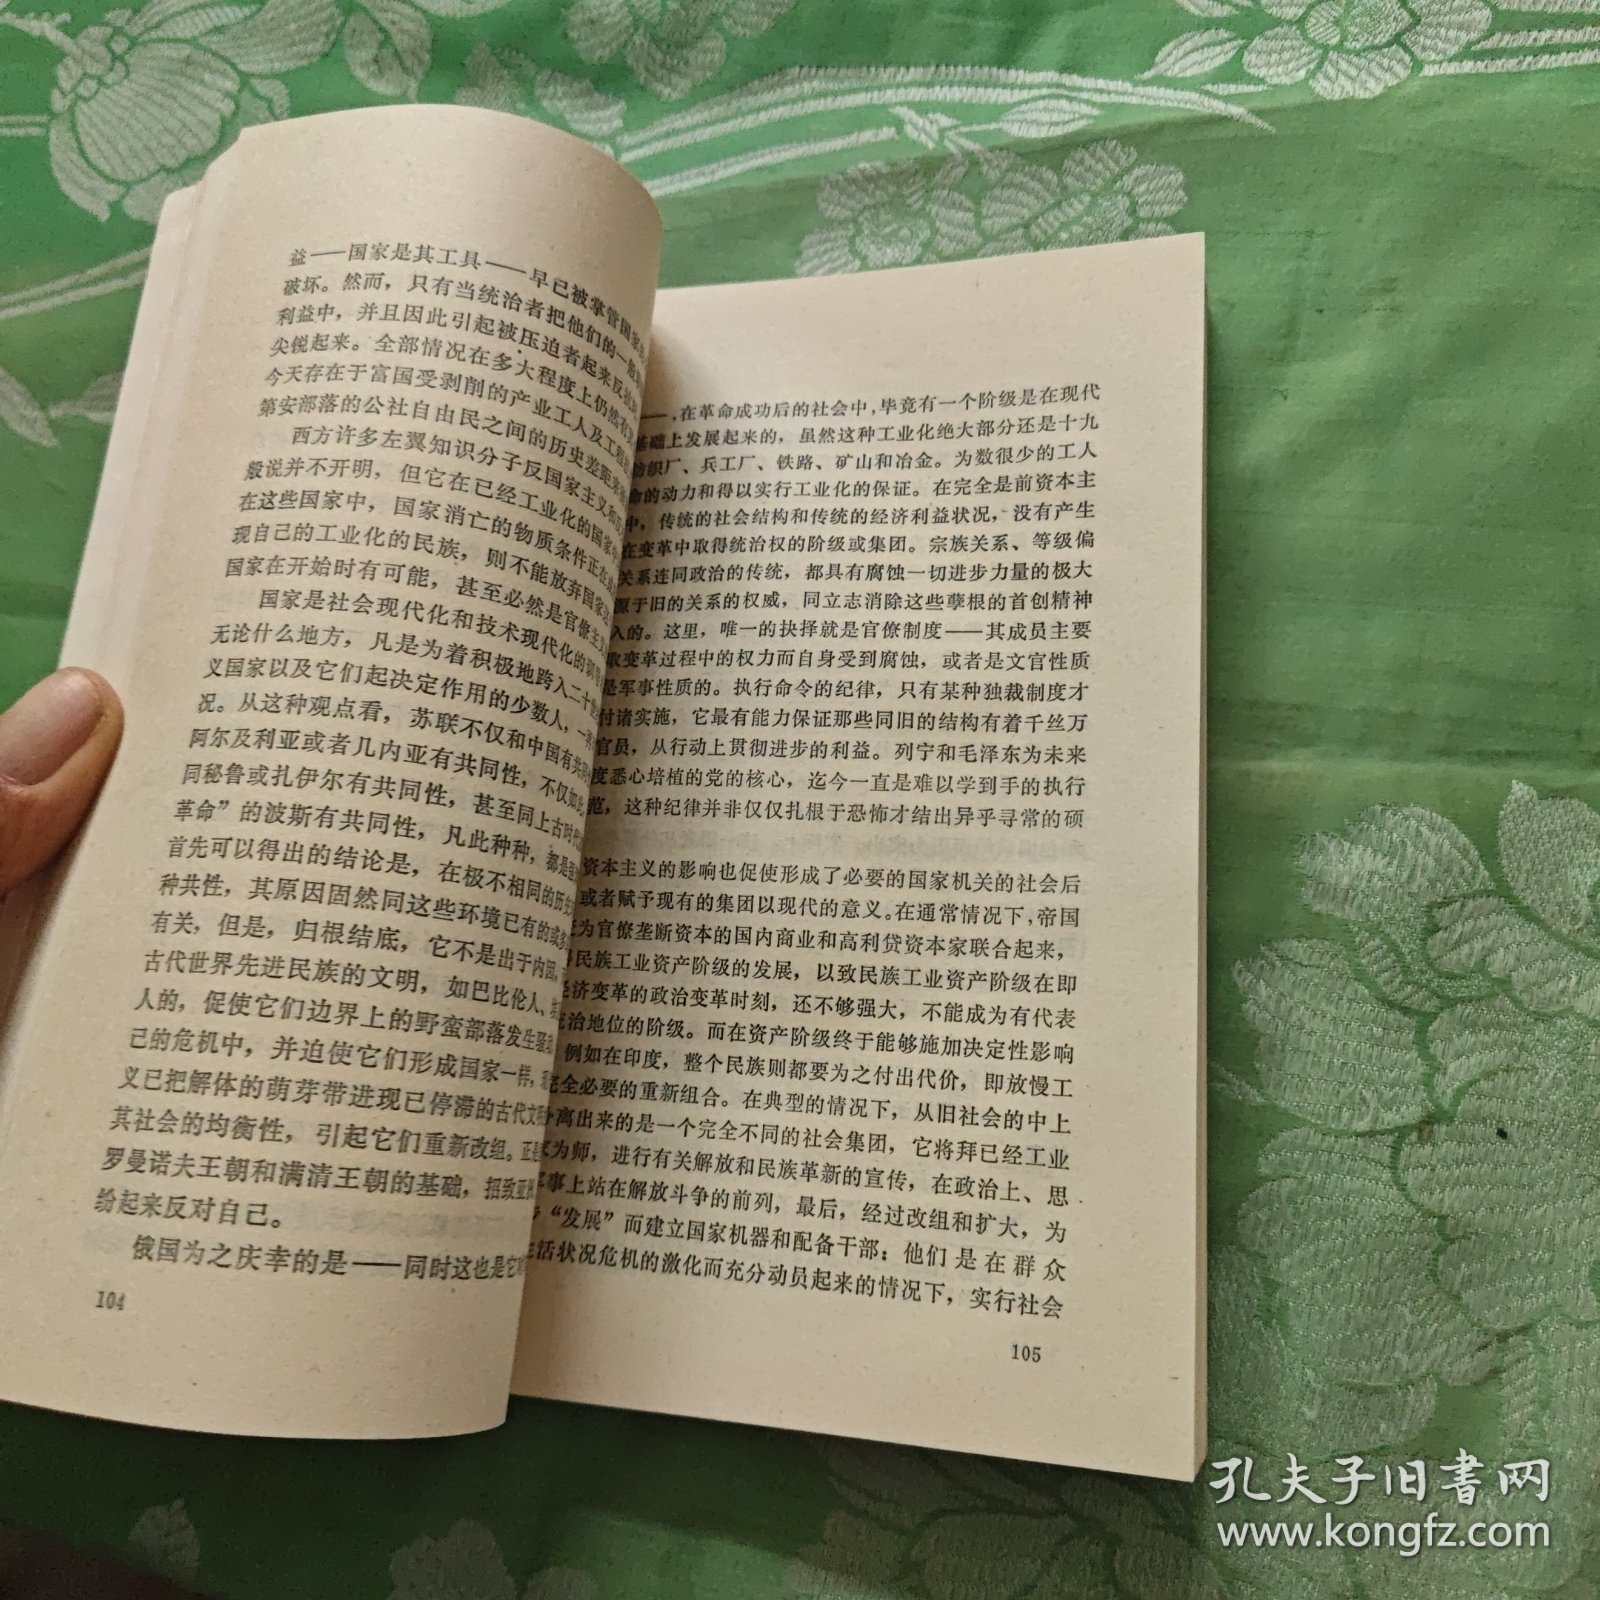 益——国家是其工具——早已被掌管国家
破坏。然而，只有当统治者把他们的一般
利益中，并且因此引起被压迫者起来反抗
尖锐起来。全部情况在多大程度上仍然有
今天存在于富国受剥削的产业工人及工程
第安部落的公社自由民之间的历史差距来
西方许多左翼知识分子反国家主义和
般说并不开明，但它在已经工业化的国家
在这些国家中，国家消亡的物质条件正在
现自己的工业化的民族，则不能放弃国家这
国家在开始时有可能，甚至必然是官僚主
国家是社会现代化和技术现代化的训
无论什么地方，凡是为着积极地跨入二十世
义国家以及它们起决定作用的少数人，一
况。从这种观点看，苏联不仅和中国有共同
阿尔及利亚或者几内亚有共同性，不仅如此，
同秘鲁或扎伊尔有共同性，甚至同上古时代
革命”的波斯有共同性，凡此种种，都是
首先可以得出的结论是，在极不相同的历史
种共性，其原因固然同这些环境已有的或多
有关，但是，归根结底，它不是出于内因，
古代世界先进民族的文明，如巴比伦人、
人的，促使它们边界上的野蛮部落发生骚
己的危机中，并迫使它们形成国家一样，
义已把解体的萌芽带进现已停滞的古代文
其社会的均衡性，引起它们重新改组。正是
罗曼诺夫王朝和满清王朝的基础，招致亚
纷起来反对自己。
俄国为之庆幸的是——同时这也是它
104
——，在革命成功后的社会中，毕竟有一个阶级是在现代
基础上发展起来的，虽然这种工业化绝大部分还是十九
纺织厂、兵工厂、铁路、矿山和冶金。为数很少的工人
命的动力和得以实行工业化的保证。在完全是前资本主
中，传统的社会结构和传统的经济利益状况，没有产生
在变革中取得统治权的阶级或集团。宗族关系、等级偏
关系连同政治的传统，都具有腐蚀一切进步力量的极大
源于旧的关系的权威，同立志消除这些孽根的首创精神
入的。这里，唯一的抉择就是官僚制度——其成员主要
取变革过程中的权力而自身受到腐蚀，或者是文官性质
是军事性质的。执行命令的纪律，只有某种独裁制度才
付诸实施，它最有能力保证那些同旧的结构有着千丝万
官员，从行动上贯彻进步的利益。列宁和毛泽东为未来
度悉心培植的党的核心，迄今一直是难以学到手的执行
范，这种纪律并非仅仅扎根于恐怖才结出异乎寻常的硕
资本主义的影响也促使形成了必要的国家机关的社会后
或者赋予现有的集团以现代的意义。在通常情况下，帝国
为官僚垄断资本的国内商业和高利贷资本家联合起来，
民族工业资产阶级的发展，以致民族工业资产阶级在即
经济变革的政治变革时刻，还不够强大，不能成为有代表
统治地位的阶级。而在资产阶级终于能够施加决定性影响
例如在印度，整个民族则都要为之付出代价，即放慢工
完全必要的重新组合。在典型的情况下，从旧社会的中上
离出来的是一个完全不同的社会集团，它将拜已经工业
为师，进行有关解放和民族革新的宣传，在政治上、思
事上站在解放斗争的前列，最后，经过改组和扩大，为
“发展”而建立国家机器和配备干部：他们是在群众
活状况危机的激化而充分动员起来的情况下，实行社会
105
孔夫子旧书网
www.kongfz.com